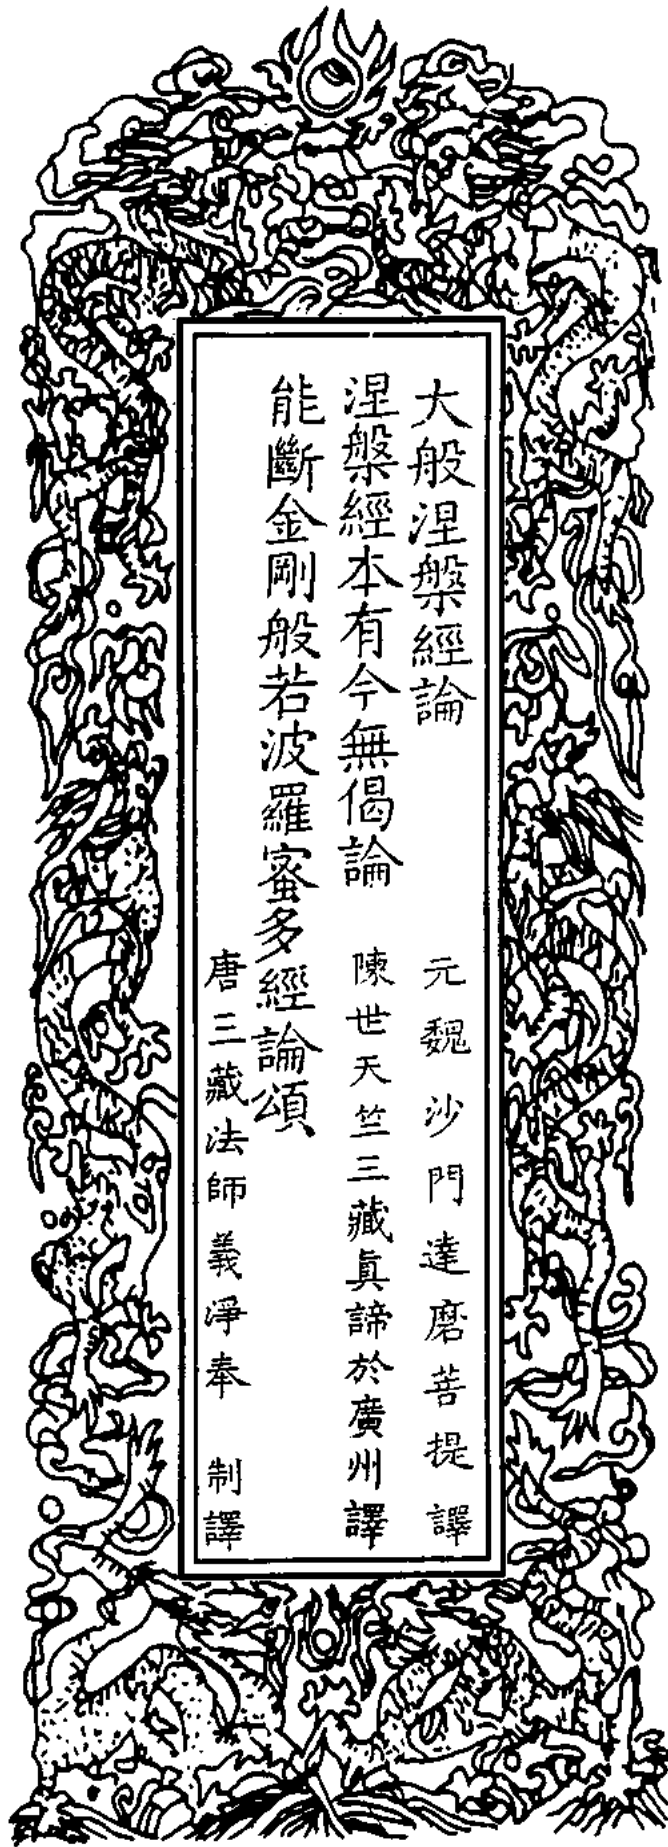 大般涅槃經論
元魏沙門達磨菩提譯
涅槃經本有今無偈論
陳世天竺三藏眞諦於廣州譯
能斷金剛般若波羅蜜多經論頌
唐三藏法師義淨奉 制譯